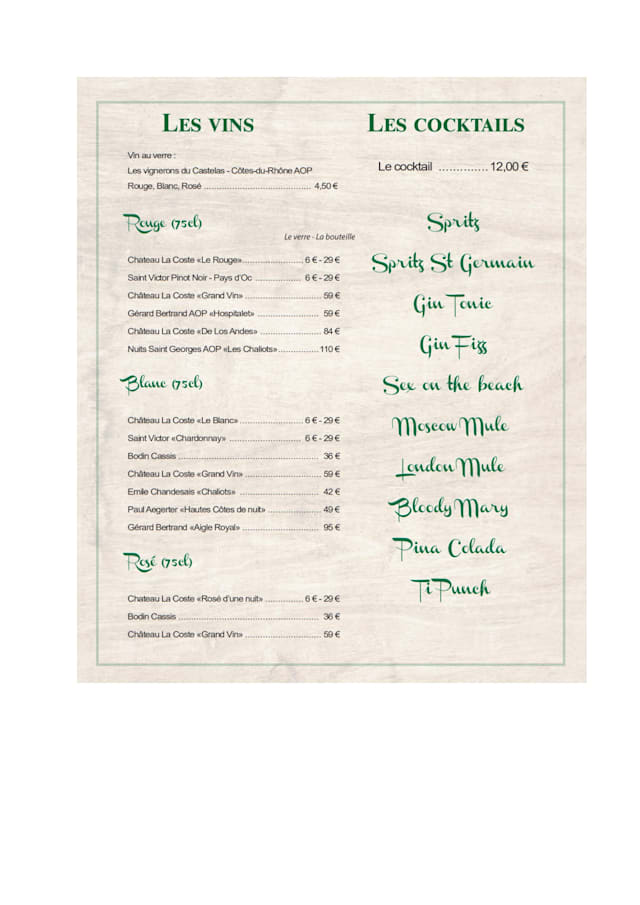 LES VINS
Vin au verre :
Les vignerons du Castelas - Côtes-du-Rhône AOP
Rouge, Blanc, Rosé ............................................ 4,50 €
Rouge (75cl)
Le verre - La bouteille
Chateau La Coste «Le Rouge»........................ 6 € - 29 €
Saint Victor Pinot Noir - Pays d'Oc .................. 6 € - 29 €
Château La Coste «Grand Vin» .............................. 59 €
Gérard Bertrand AOP «Hospitalet» ........................ 59 €
Château La Coste «De Los Andes» ........................ 84 €
Nuits Saint Georges AOP «Les Chaliots»................110 €
Blanc (75cl)
Château La Coste «Le Blanc» ......................... 6 € - 29 €
Saint Victor «Chardonnay» ............................ 6 € - 29 €
Bodin Cassis ....................................................... 36 €
Château La Coste «Grand Vin» .............................. 59 €
Emile Chandesais «Chaliots» ............................... 42 €
Paul Aegerter «Hautes Côtes de nuit» ..................... 49 €
Gérard Bertrand «Aigle Royal» .............................. 95 €
Rosé (75cl)
Chateau La Coste «Rosé d'une nuit» ............... 6 € - 29 €
Bodin Cassis ....................................................... 36 €
Château La Coste «Grand Vin» .............................. 59 €
LES COCKTAILS
Le cocktail .............. 12,00 €
Spritz
Spritz St Germain
Gin Tonic
Gin Fizz
Sex on the beach
Moscow Mule
London Mule
Bloody Mary
Pina Colada
Ti Punch